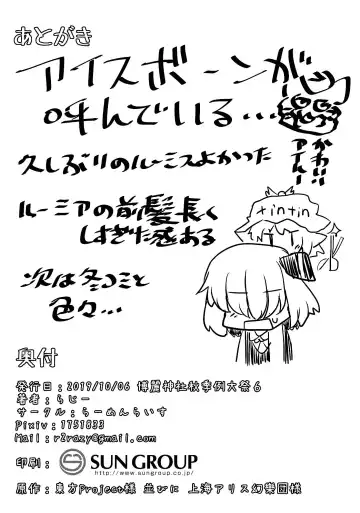 あとがき
アイスボーンが
呼んでいる…
かわいい
アイルー
久しぶりのルーミスよかった
tintin
ルーミアの前髪長く
しすぎた感ある
次は冬コミと
色々…
奥付
発行日：2019/10/06 博麗神社秋季例大祭6
著者：らじー
サークル：らーめんらいす
Pixiv：1751833
Mail：r2razy@gmail.com
印刷：
SUN GROUP
http://www.sungroup.co.jp/
原作：東方Project様 並びに 上海アリス幻樂団様